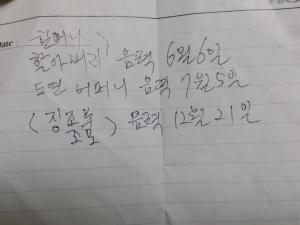 Date :
할머니
할아버지 ) 음력 6월 6일
도련 어머니 음력 7월 5일
(징조부
조모 ) 음력 12월 21일